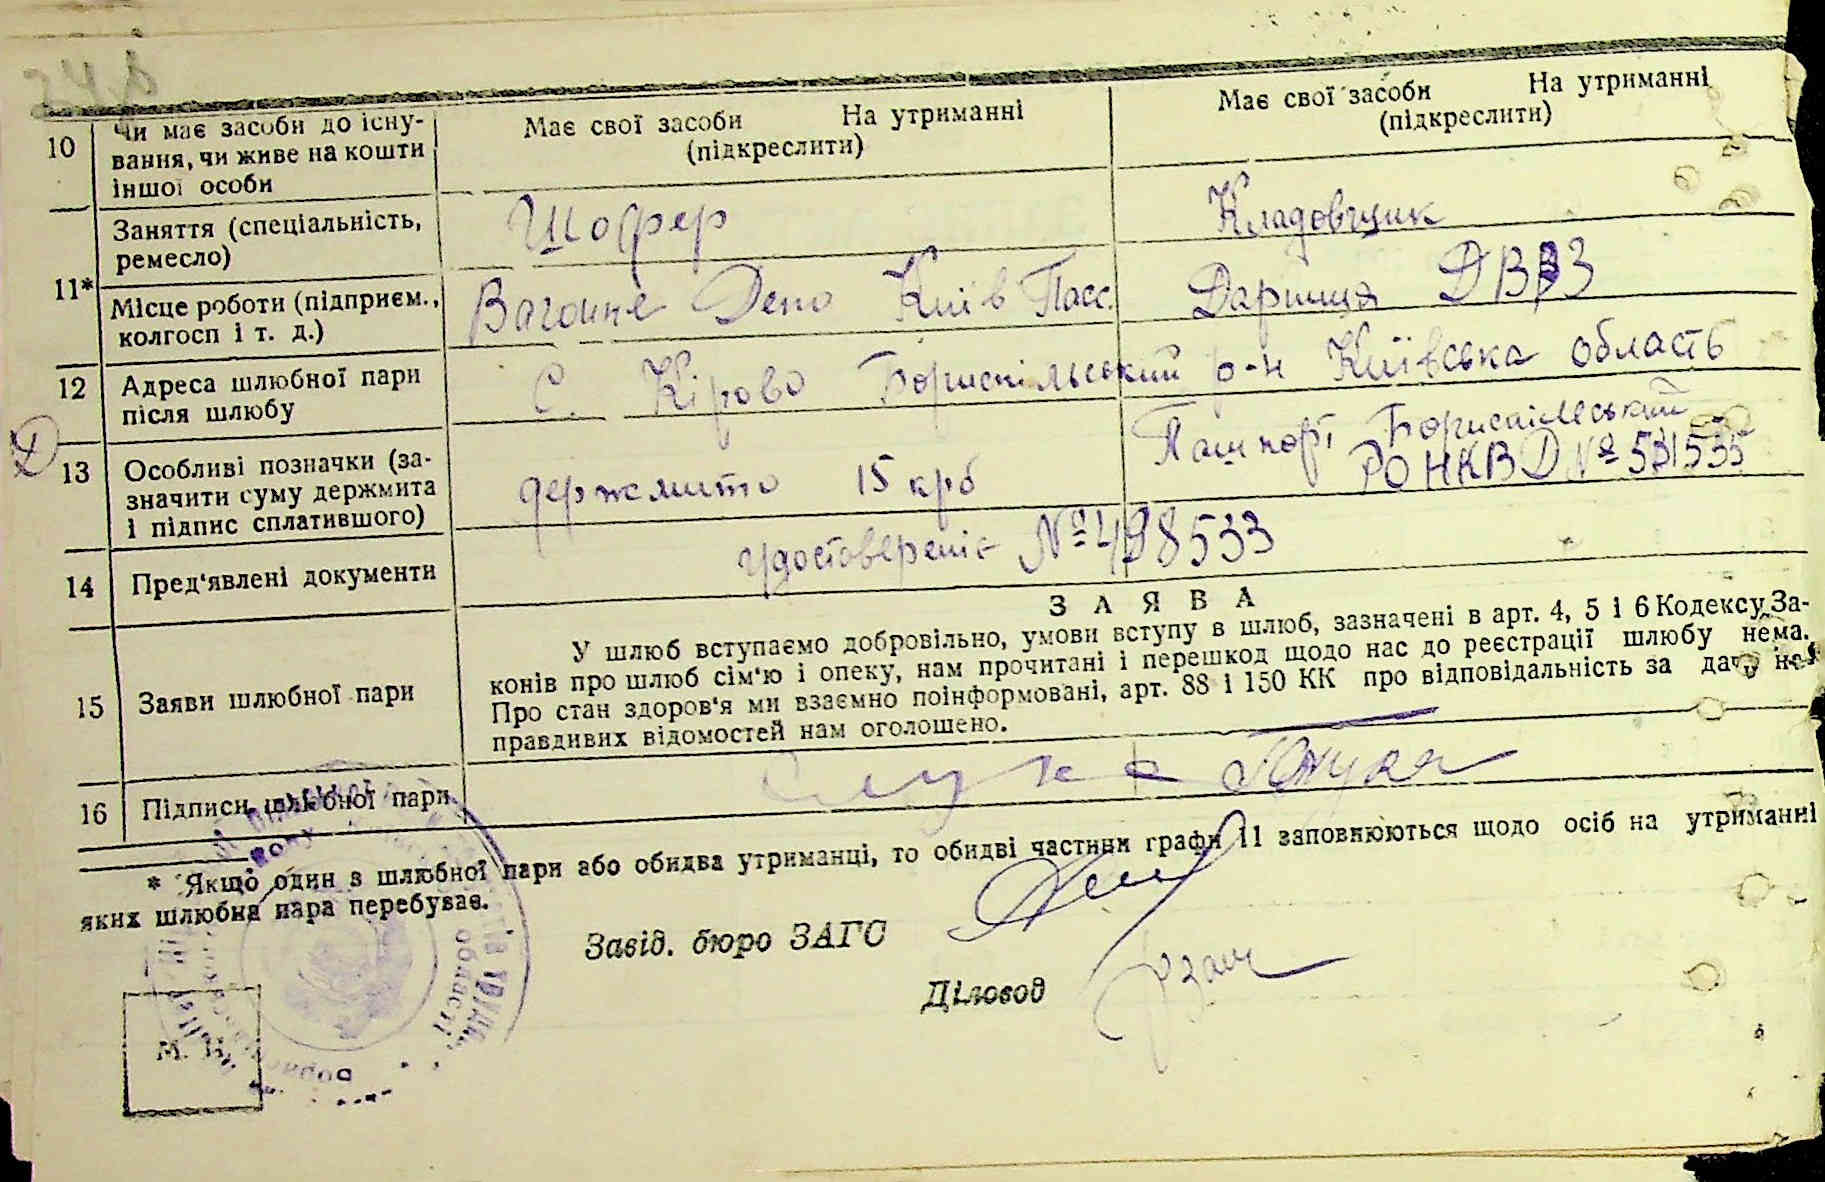 10
Чи має засоби до існу-
вання, чи живе на кошти
іншої особи
Має свої засоби На утриманні
(підкреслити)
Має свої засоби На утриманні
(підкреслити)
11*
Заняття (спеціальність,
ремесло)
Шофер
Кладовщик
Місце роботи (підприєм.,
колгосп і т. д.)
Вагонне Депо Київ Пасс.
Дарниця ДВРЗ
12
Адреса шлюбної пари
після шлюбу
С. Кірово Бориспільський р-н Київська область
13
Особливі позначки (за-
значити суму держмита
і підпис сплатившого)
держмито 15 крб
Пашпорт Бориспільський
РО НКВД № 531535
14
Пред'явлені документи
удостоверенік № 498533
15
Заяви шлюбної пари
ЗАЯВА
У шлюб вступаємо добровільно, умови вступу в шлюб, зазначені в арт. 4, 5 і 6 Кодексу За-
конів про шлюб сім'ю і опеку, нам прочитані і перешкод щодо нас до реєстрації шлюбу нема.
Про стан здоров'я ми взаємно поінформовані, арт. 88 і 150 КК про відповідальність за дачу не-
правдивих відомостей нам оголошено.
16
Підписи шлюбної пари
* Якщо один з шлюбної пари або обидва утриманці, то обидві частини графи 11 заповнюються щодо осіб на утриманні
яких шлюбна пара перебуває.
Завід. бюро ЗАГС
Діловод
М. П.
області